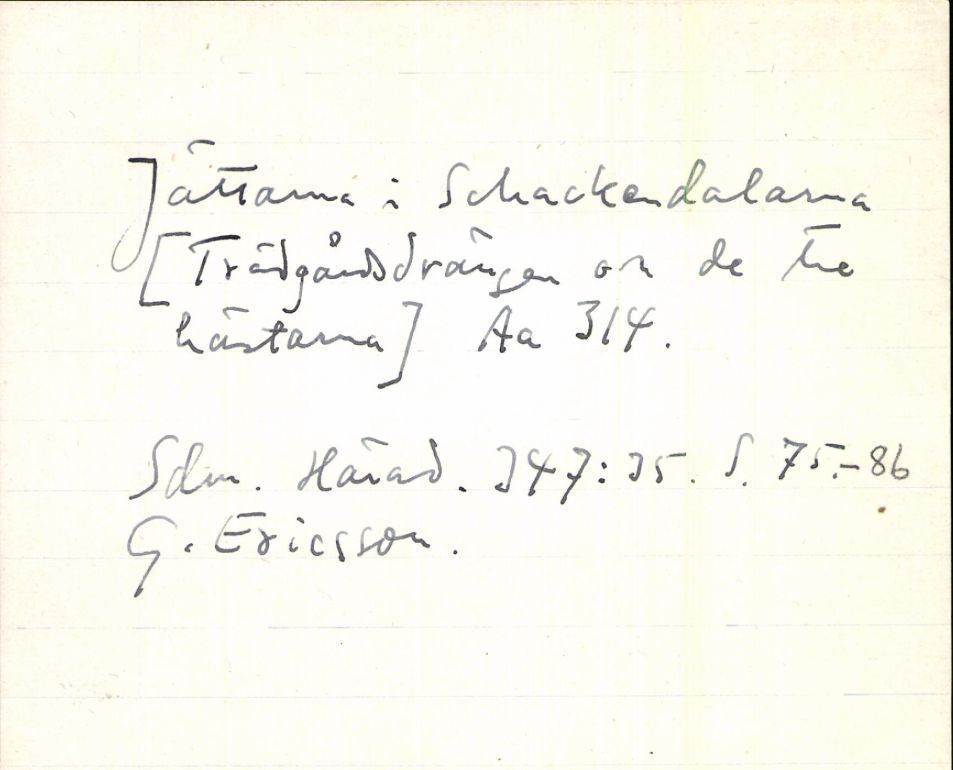 Jättarna i Schackendalarna
[Trädgårdsdrängen och de tre
hästarna] Aa 314.
Sdm. Härad. 347:35. S. 75.-86
G. Ericsson.